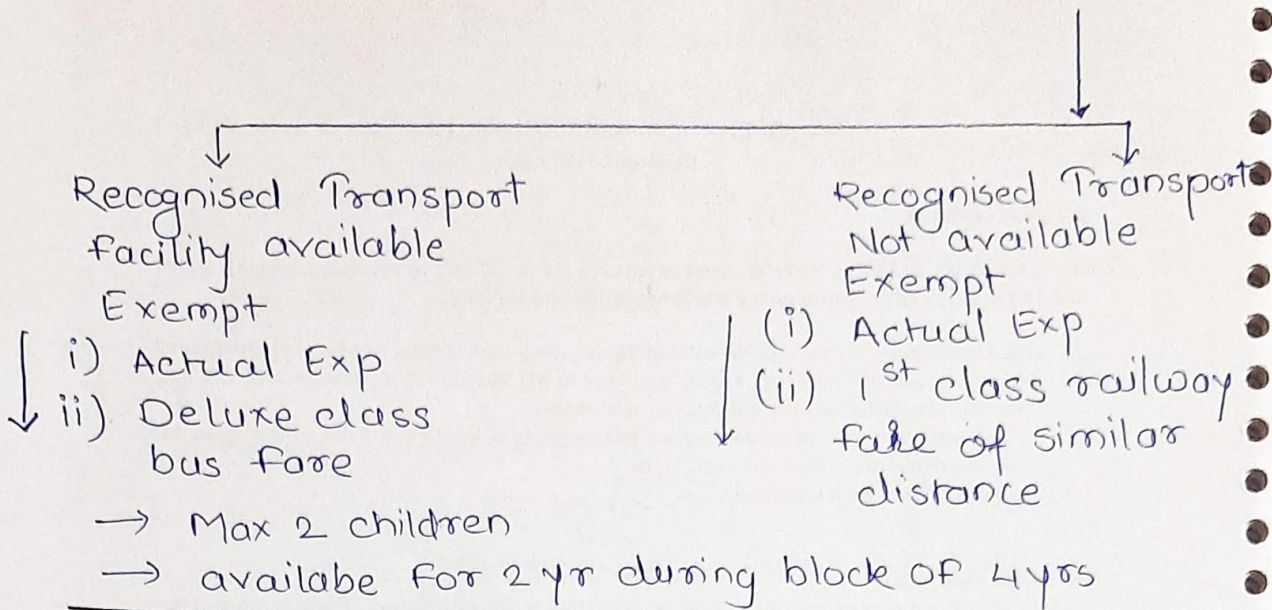 Recognised Transport
facility available
Exempt
i) Actual Exp
ii) Deluxe class
bus fare
Recognised Transport
Not available
Exempt
(i) Actual Exp
(ii) 1st class railway
fare of similar
distance
→ Max 2 children
→ availabe For 2 yr during block of 4 yrs